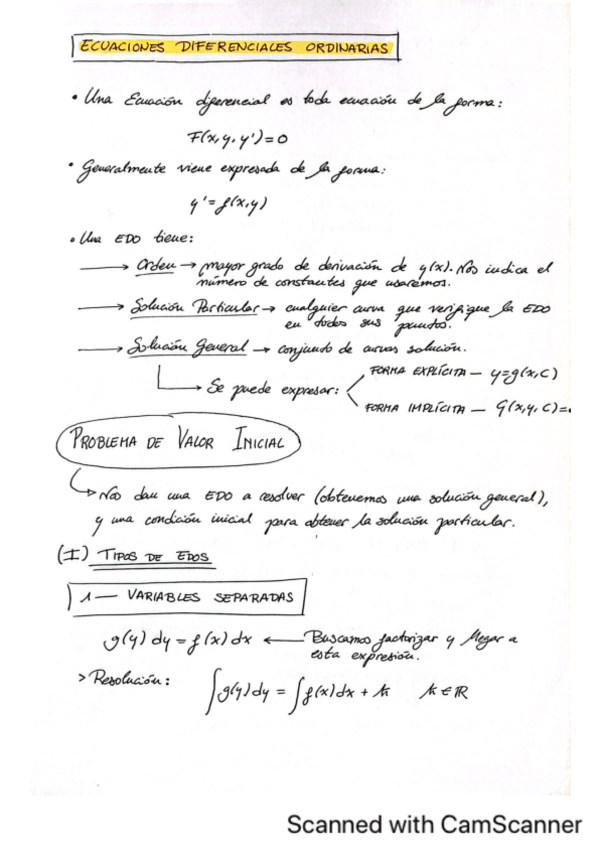 ECUACIONES DIFERENCIALES ORDINARIAS
• Una Ecuación diferencial es toda ecuación de la forma:
F(x,y,y')=0
• Generalmente viene expresada de la forma:
y'=f(x,y)
• Una EDO tiene:
→ Orden → mayor grado de derivación de y(x). Nos indica el
número de constantes que usaremos.
→ Solución Particular → cualquier curva que verifique la EDO
en todos sus puntos.
→ Solución General → conjunto de curvas solución.
→ Se puede expresar: < FORMA EXPLÍCITA — y=g(x,C)
FORMA IMPLÍCITA — G(x,y,C)=
PROBLEMA DE VALOR INICIAL
→ Nos dan una EDO a resolver (obtenemos una solución general),
y una condición inicial para obtener la solución particular.
(I) TIPOS DE EDOS
1 — VARIABLES SEPARADAS
g(y) dy = f(x) dx ← Buscamos factorizar y llegar a
esta expresión.
> Resolución: ∫g(y)dy = ∫f(x)dx + k k ∈ ℝ
Scanned with CamScanner